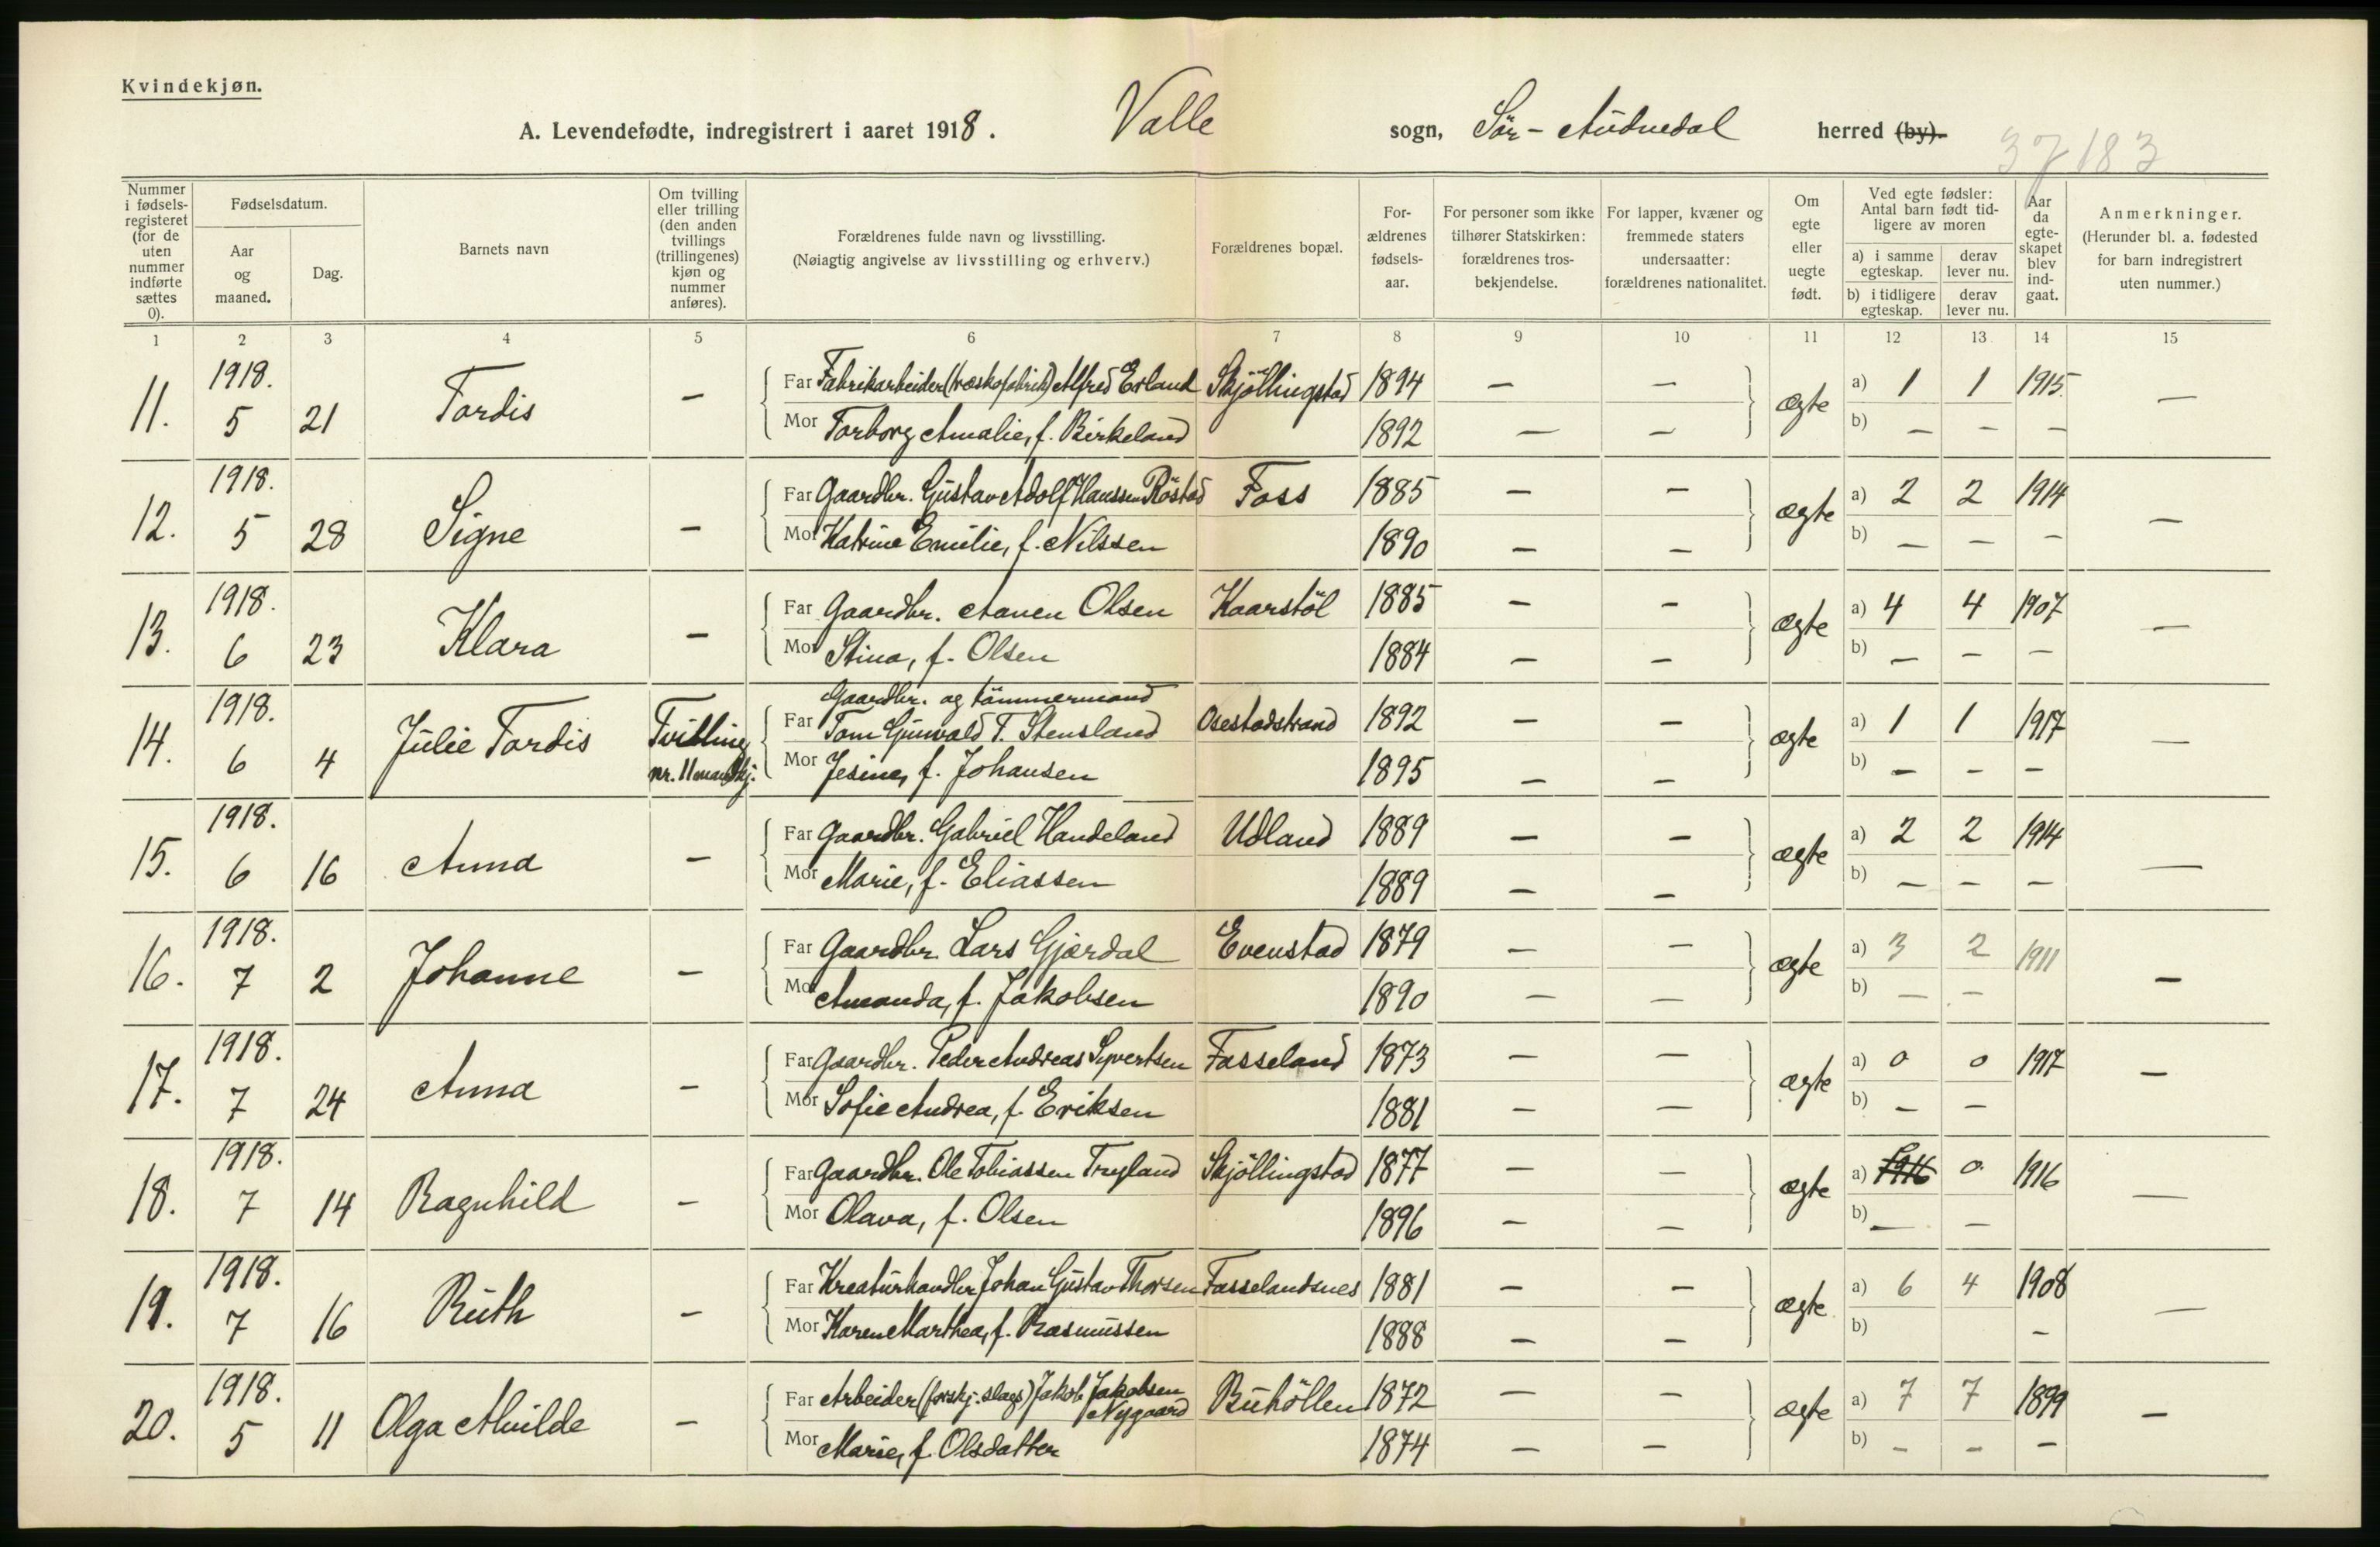 Kvindekjøn.
A. Levendefødte, indregistrert i aaret 1918. Valle sogn, Sör-Audnedal herred (by).
37183
Nummer i fødsels-registeret (for de uten nummer indførte sættes 0).
Fødselsdatum.
Aar og maaned.
Dag.
Barnets navn
Om tvilling eller trilling (den anden tvillings (trillingenes) kjøn og nummer anføres).
Forældrenes fulde navn og livsstilling.
(Nøiagtig angivelse av livsstilling og erhverv.)
Forældrenes bopæl.
For-ældrenes fødsels-aar.
For personer som ikke tilhører Statskirken: forældrenes tros-bekjendelse.
For lapper, kvæner og fremmede staters undersaatter: forældrenes nationalitet.
Om egte eller uegte født.
Ved egte fødsler: Antal barn født tid-ligere av moren
a) i samme egteskap.
derav lever nu.
b) i tidligere egteskap.
derav lever nu.
Aar da egte-skapet blev ind-gaat.
Anmerkninger.
(Herunder bl. a. fødested for barn indregistrert uten nummer.)
1 2 3 4 5 6 7 8 9 10 11 12 13 14 15
11. 1918. 5 21 Tordis — Far Fabrikarbeider (træskofabrik) Alfred Erland Skjöllingstad 1894 — — ægte a) 1 1 1915 —
Mor Torborg Amalie, f. Birkeland 1892 — — b) — — —
12. 1918. 5 28 Signe — Far Gaardbr. Gustav Adolf Hanssen Röstad Foss 1885 — — ægte a) 2 2 1914 —
Mor Katrine Emilie, f. Nilssen 1890 — — b) — — —
13. 1918. 6 23 Klara — Far Gaardbr. Aanen Olsen Kaarstöl 1885 — — ægte a) 4 4 1907 —
Mor Stina, f. Olsen 1884 — — b) — — —
14. 1918. 6 4 Julie Tordis Tvilling nr. 11 mandkj. Gaardbr. og tömmermand
Far Tom Gunvald T. Stensland Osestadstrand 1892 — — ægte a) 1 1 1917 —
Mor Jesine, f. Johansen 1895 — — b) — — —
15. 1918. 6 16 Anna — Far Gaardbr. Gabriel Handeland Udland 1889 — — ægte a) 2 2 1914 —
Mor Marie, f. Eliassen 1889 — — b) — — —
16. 1918. 7 2 Johanne — Far Gaardbr. Lars Gjerdal Evenstad 1879 — — ægte a) 3 2 1911 —
Mor Amanda, f. Jakobsen 1890 — — b) — —
17. 1918. 7 24 Anna — Far Gaardbr. Peder Andreas Syvertsen Fasseland 1873 — — ægte a) 0 0 1917 —
Mor Sofie Andrea, f. Eriksen 1881 — — b) — —
18. 1918. 7 14 Ragnhild — Far Gaardbr. Ole Tobiassen Tryland Skjöllingstad 1877 — — ægte a) 1916 0 1916 —
Mor Olava, f. Olsen 1896 — — b) — —
19. 1918. 7 16 Ruth — Far Kreaturhandler Johan Gustav Thorsen Fasselandsnes 1881 — — ægte a) 6 4 1908 —
Mor Karen Marthea, f. Rasmussen 1888 — — b) —
20. 1918. 5 11 Olga Alvilde — Far Arbeider (forskj. slags) Jakob Jakobsen Nygaard Buhöllen 1872 — — ægte a) 7 7 1899 —
Mor Marie, f. Olsdatter 1874 — — b) — — —